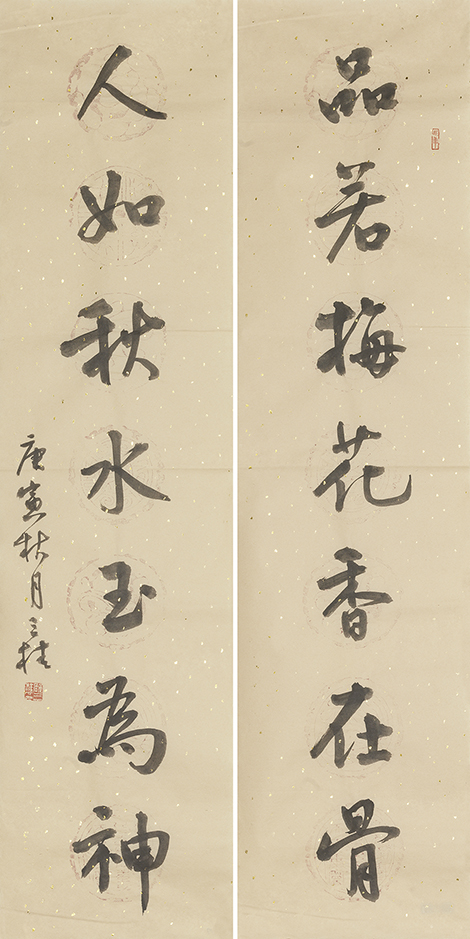 品若梅花香在骨
人如秋水玉為神
庚寅秋月三桂